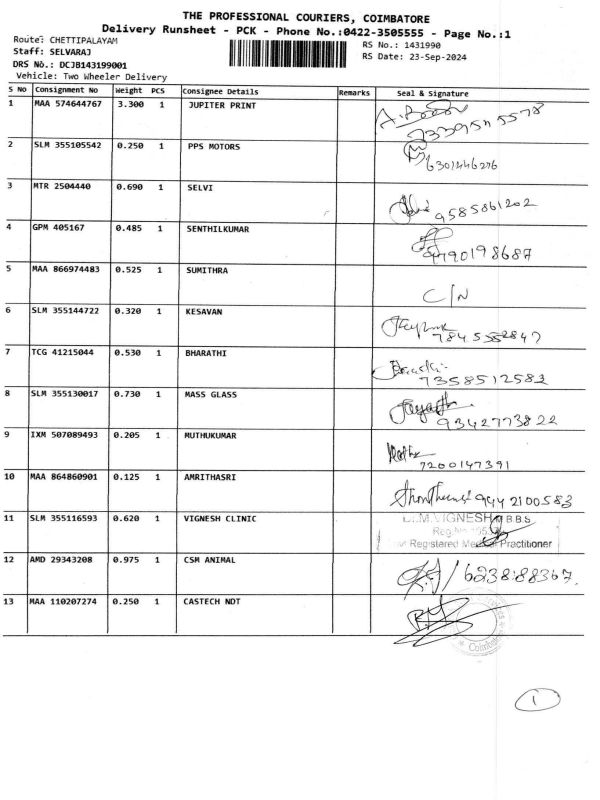 THE PROFESSIONAL COURIERS, COIMBATORE
Delivery Runsheet - PCK - Phone No.:0422-3505555 - Page No.:1
Route: CHETTIPALAYAM
RS No.: 1431990
Staff: SELVARAJ
RS Date: 23-Sep-2024
DRS No.: DCJB143199001
Vehicle: Two Wheeler Delivery
S No Consignment No Weight PCS Consignee Details Remarks Seal & Signature
1 MAA 574644767 3.300 1 JUPITER PRINT
2 SLM 355105542 0.250 1 PPS MOTORS
6301446276
3 MTR 2504440 0.690 1 SELVI
9585861202
4 GPM 405167 0.485 1 SENTHILKUMAR
4790198687
5 MAA 866974483 0.525 1 SUMITHRA
C/N
6 SLM 355144722 0.320 1 KESAVAN
7845552847
7 TCG 41215044 0.530 1 BHARATHI
7358512582
8 SLM 355130017 0.730 1 MASS GLASS
9342773822
9 IXM 507089493 0.205 1 MUTHUKUMAR
7200147391
10 MAA 864860901 0.125 1 AMRITHASRI
9442100583
11 SLM 355116593 0.620 1 VIGNESH CLINIC
VIGNESH M.B.B.S
Registered Medical Practitioner
12 AMD 29343208 0.975 1 CSM ANIMAL
6238188367
13 MAA 110207274 0.250 1 CASTECH NDT
Coimbatore
1